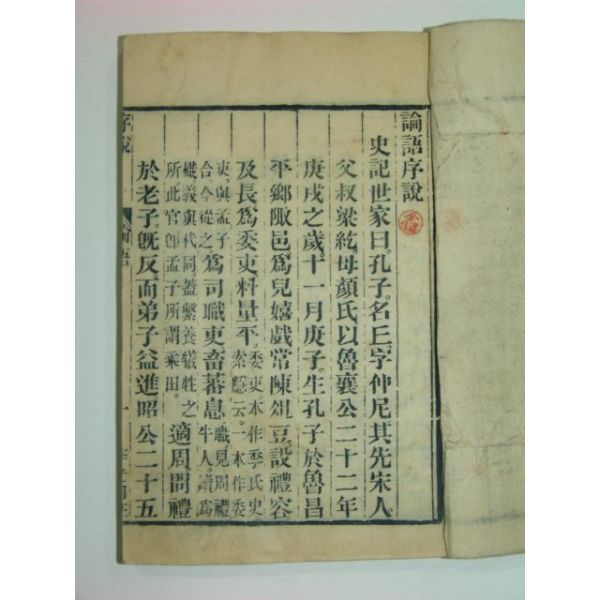 論語序說
史記世家曰孔子名丘字仲尼其先宋人
父叔梁紇母顏氏以魯襄公二十二年
庚戌之歲十一月庚子生孔子於魯昌
平鄉陬邑爲兒嬉戲常陳俎豆設禮容
及長爲委吏料量平委吏本作季氏史索隱云一本作委
吏與孟子合今從之爲司職吏畜蕃息職見周禮牛人讀爲
樴義與代同蓋繫養犧牲之所此官卽孟子所謂乘田適周問禮
於老子旣反而弟子益進昭公二十五
序說
論語
一